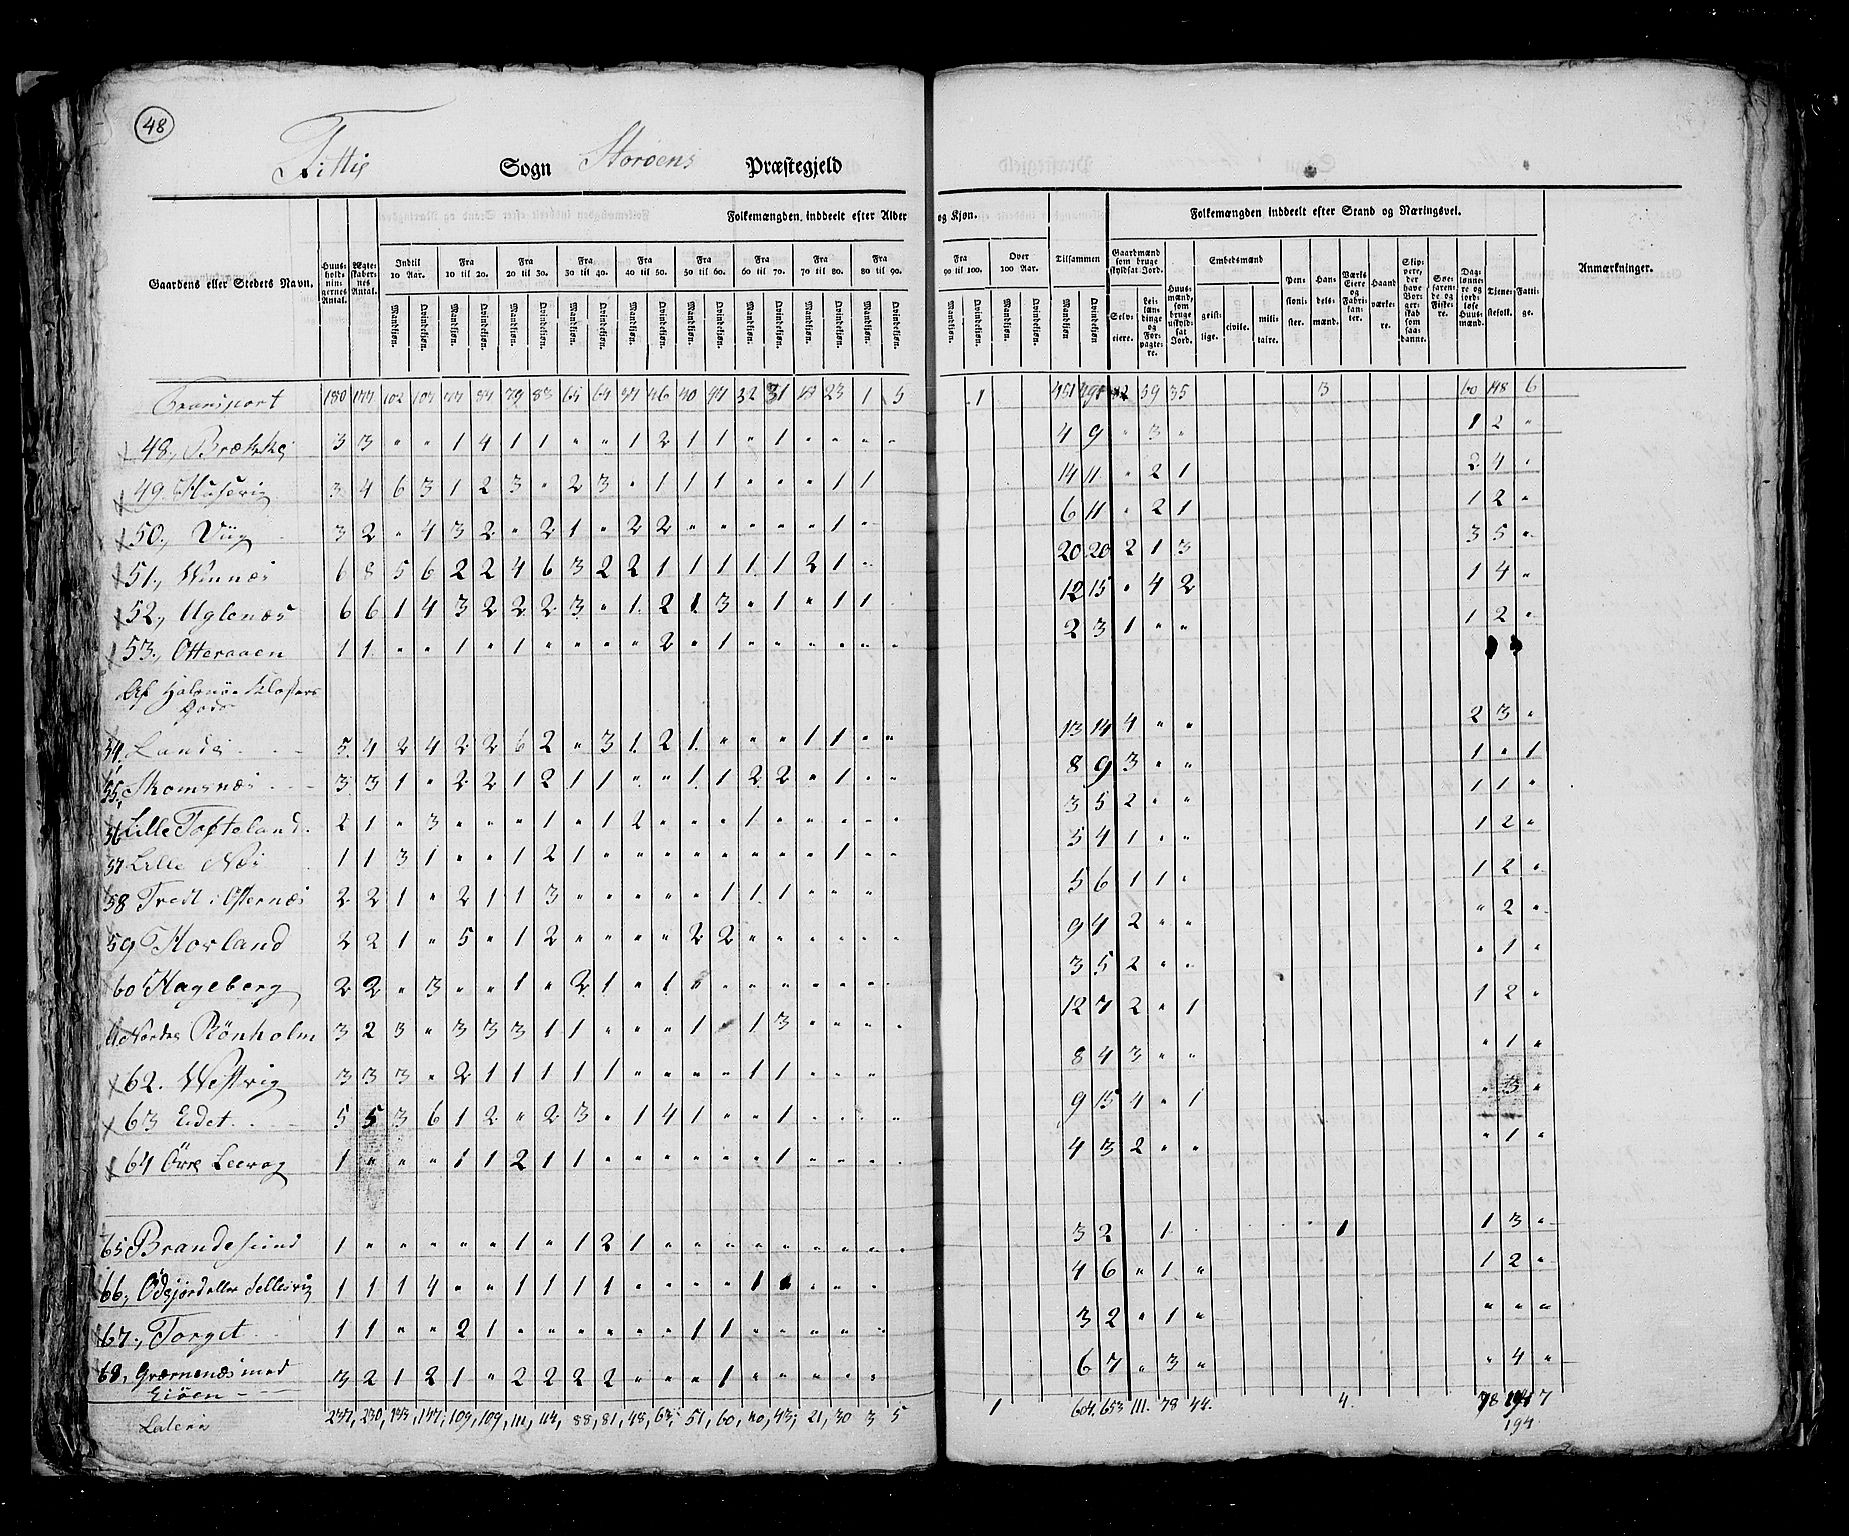 48
Sogn Storöens Præstegjeld
Gaardens eller Steders Navn.
Huusholdningernes Antal.
Ægteskabernes Antal.
Folkemængden, inddeelt efter Alder og Kjøn.
Indtil 10 Aar. Fra 10 til 20. Fra 20 til 30. Fra 30 til 40. Fra 40 til 50. Fra 50 til 60. Fra 60 til 70. Fra 70 til 80. Fra 80 til 90. Fra 90 til 100. Over 100 Aar. Tilsammen
Mandkjøn. Qvindekjøn.
Folkemængden inddeelt efter Stand og Næringsvei.
Gaardmænd som bruge skyldsat Jord.
Selveiere. Leilændinge og Forpagtere.
Huusmænd, som bruge uskyldsat Jord.
Embedsmænd
geistlige. civile. militaire.
Pensionister.
Handelsmænd.
Værkseiere og Fabrikanter.
Haandværkere.
Skippere, der have Borgerskab som saadanne.
Søefarende og Fiskere.
Daglønnere og jordløse Huusmænd.
Tjenestefolk.
Fattige.
Anmærkninger.
Transport 1 3 6
48, 3 3 " " 1 4 1 1 " " 1 2 1 1 " 1 " " " " 4 9 " 3 " 1 2 "
49 3 4 6 3 1 2 3 " 2 3 " 1 1 1 " " " 1 1 14 11 " 2 1 2 4 "
50, 3 2 " 4 3 2 " 2 1 " 2 2 " " " " " 1 " 6 11 " 2 1 1 2 "
51, Winnæs 6 8 5 6 2 2 4 6 3 2 2 1 1 1 1 1 2 1 " 20 20 2 1 3 3 5 "
52, Uglenæs 6 6 1 4 3 2 2 2 3 " 1 2 1 3 " 1 " 1 1 12 15 " 4 2 1 4 "
53, Otteraaen 1 1 " " 1 " 1 " " " " 2 " 1 " " " " " " 2 3 1 " " 1 2 "
Af Halsnöe Klosters Gods
54, Lande 5 4 2 4 2 2 6 2 " 3 1 2 1 " " " 1 1 " " 13 14 4 " " 2 3 "
55, 3 3 1 " 2 2 1 2 1 1 " " 1 1 2 2 " 1 " " 8 9 3 " " 1 " 1
56 Lille Tofteland 2 1 " 3 " " " 1 " 1 2 " " " 1 " " " " " 3 5 2 " " 1 1 "
57 Lille Næs 1 1 3 1 " " 1 2 1 " " " " " " " " 1 " " 5 4 1 " " 1 2 "
58 2 2 1 " 2 1 1 3 " " " " " 1 1 1 " " " 5 6 1 1 " 1 2 "
59 Horland 2 2 1 " 5 " 1 2 " " " " 2 2 " " " " " " 9 4 2 " " " 2 "
60 Hageberg 2 2 " 3 " " 1 " 2 1 " 1 " " " " " " " 3 5 2 " " " 1 "
61 Nordre Rönholm 3 2 3 " 3 3 3 1 1 " " " 1 " 1 3 " " " " 12 7 2 " 1 1 2 "
62. Westvig 3 3 3 " 2 1 1 1 1 1 " " " " 1 1 " " " 8 4 3 " " " 1 "
63 Eidet 5 5 3 6 1 2 " 2 3 " 1 4 1 " " 1 " " " " 9 15 4 " 1 " 3 "
64 Övre Leervog 1 " " " 1 1 2 1 1 " " " " " " 1 " " " " 4 3 2 " " " 1 "
65 Brandesund 1 " " " " " 1 " 1 2 1 " " " " " " " " " 3 2 1 1 1 3 "
66, 1 1 1 4 " " 1 1 1 1 " " " " 1 " " " 4 6 " 1 " 1 2 "
67, Torget 1 1 " " 2 1 " " " " " " 1 1 " " " " " 3 2 " 1 " " " "
68, Græmenæs med
Siöen 3 2 1 2 1 " 2 2 2 2 " " " 1 " " " " " 6 7 " 3 " " 4 "
237, 230, 109, 109, 88, 81, 48, 51, 60, 40, 43, 21, 30 3 5 1 604. 653 111. 78 44. 4. 78 7
194